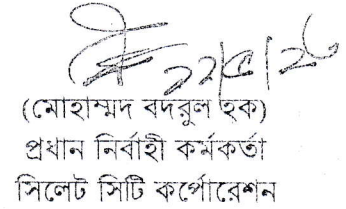 ২২/৫/২৬
(মোহাম্মদ বদরুল হক)
প্রধান নির্বাহী কর্মকর্তা
সিলেট সিটি কর্পোরেশন